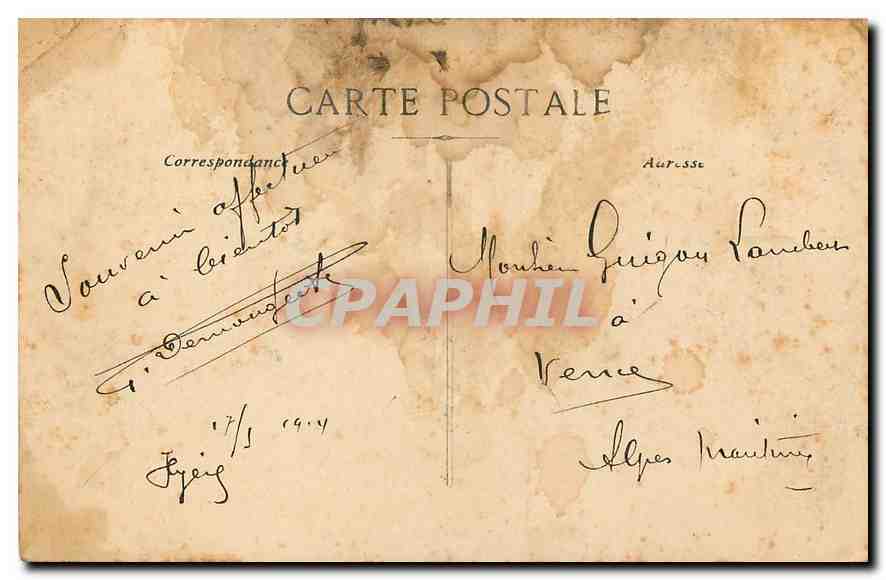 CARTE POSTALE
Correspondance
Adresse
Souvenir affectueux
à bientôt
Monsieur Guigou Lambert
à
Vence
Alpes Maritimes
17/1 1914
Hyères
CPAPHIL